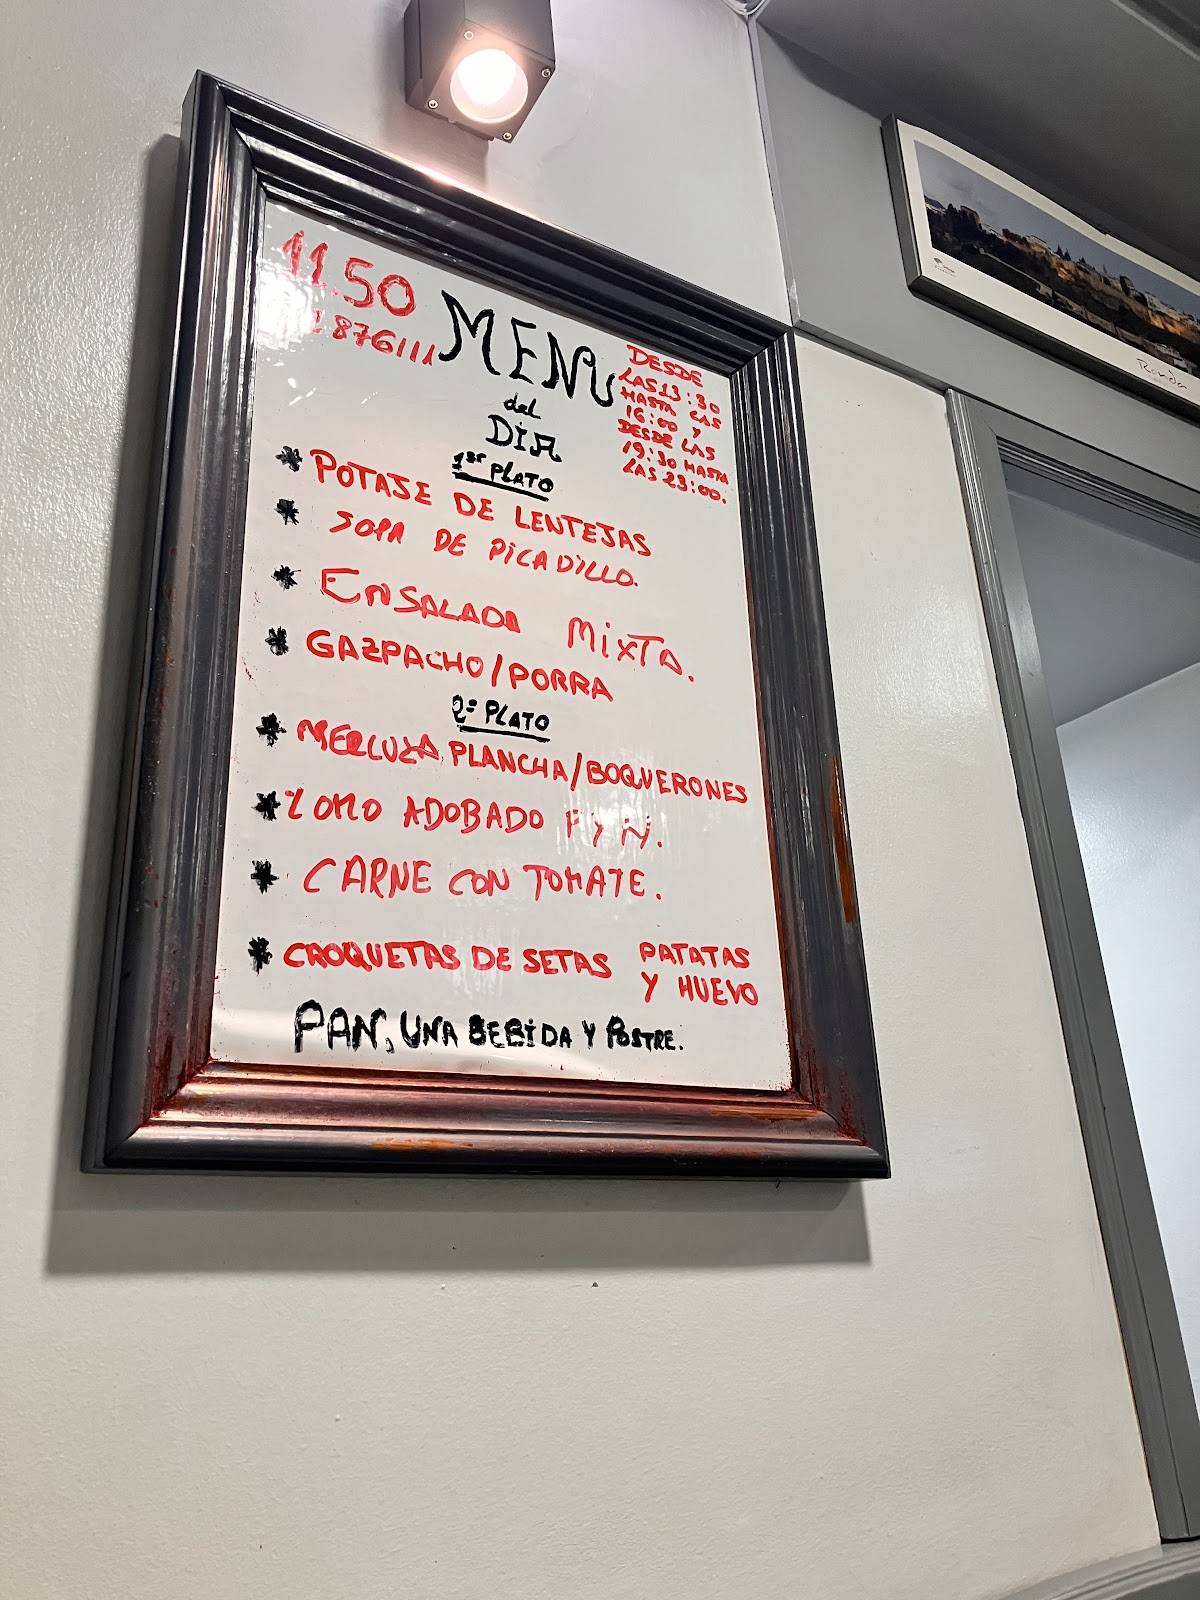 11.50
876111
MENU
del
DIA
DESDE
LAS 13:30
HASTA LAS
16:00 Y
DESDE LAS
19:30 HASTA
LAS 23:00.
1er PLATO
* POTAJE DE LENTEJAS
* SOPA DE PICADILLO.
* ENSALADA MIXTA.
* GAZPACHO/PORRA
2º PLATO
* MERLUZA PLANCHA/BOQUERONES
* LOMO ADOBADO
* CARNE CON TOMATE.
* CROQUETAS DE SETAS PATATAS
Y HUEVO
PAN, UNA BEBIDA Y POSTRE.
Ronda